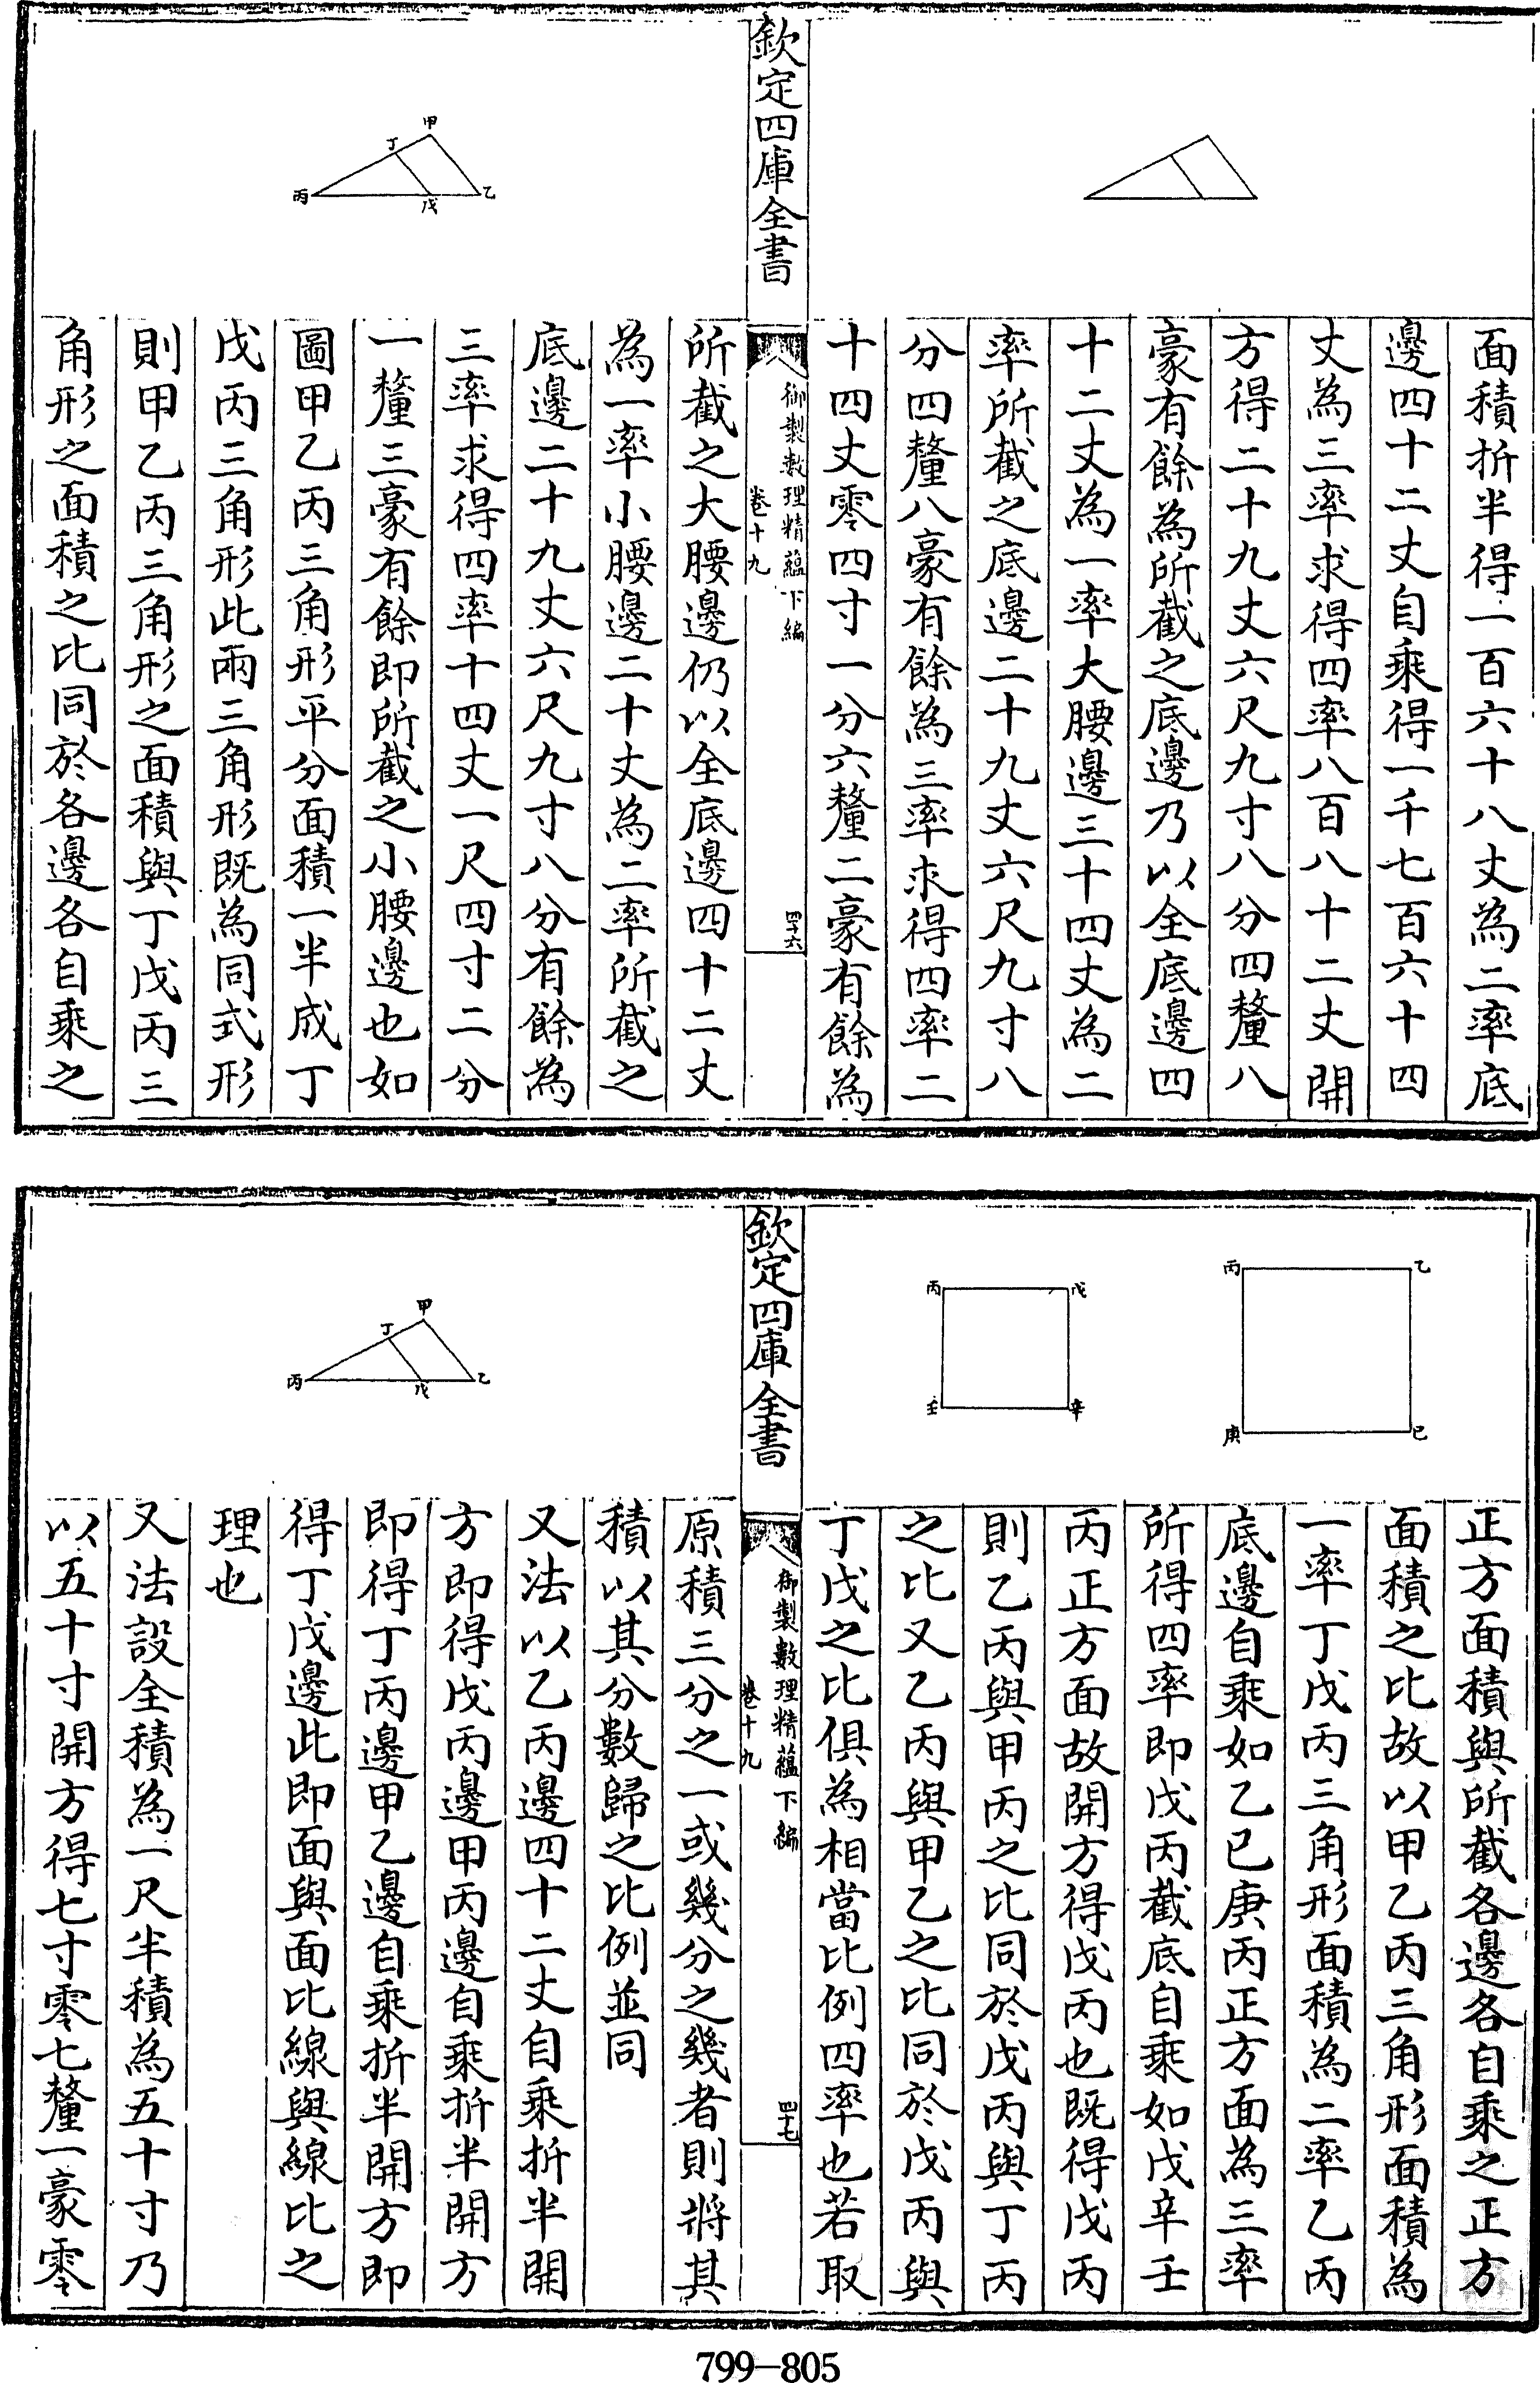 面積折半得一百六十八丈為二率底
邊四十二丈自乘得一千七百六十四
丈為三率求得四率八百八十二丈開
方得二十九丈六尺九寸八分四釐八
豪有餘為所截之底邊乃以全底邊四
十二丈為一率大腰邊三十四丈為二
率所截之底邊二十九丈六尺九寸八
分四釐八豪有餘為三率求得四率二
十四丈零四寸一分六釐二豪有餘為
欽定四庫全書
御製數理精蘊下編
卷十九
四十六
所截之大腰邊仍以全底邊四十二丈
為一率小腰邊二十丈為二率所截之
底邊二十九丈六尺九寸八分有餘為
三率求得四率十四丈一尺四寸二分
一釐三豪有餘即所截之小腰邊也如
圖甲乙丙三角形平分面積一半成丁
戊丙三角形此兩三角形既為同式形
則甲乙丙三角形之面積與丁戊丙三
角形之面積之比同於各邊各自乘之
甲
丁
丙
戊
乙
正方面積與所截各邊各自乘之正方
面積之比故以甲乙丙三角形面積為
一率丁戊丙三角形面積為二率乙丙
底邊自乘如乙已庚丙正方面為三率
所得四率即戊丙截底自乘如戊辛壬
丙正方面故開方得戊丙也既得戊丙
則乙丙與甲丙之比同於戊丙與丁丙
之比又乙丙與甲乙之比同於戊丙與
丁戊之比俱為相當比例四率也若取
乙
丙
已
庚
戊
丙
辛
壬
欽定四庫全書
御製數理精蘊下編
卷十九
四十七
原積三分之一或幾分之幾者則將其
積以其分數歸之比例並同
又法以乙丙邊四十二丈自乘折半開
方即得戊丙邊甲丙邊自乘折半開方
即得丁丙邊甲乙邊自乘折半開方即
得丁戊邊此即面與面比線與線比之
理也
又法設全積為一尺半積為五十寸乃
以五十寸開方得七寸零七釐一豪零
甲
丁
丙
戊
乙
799-805